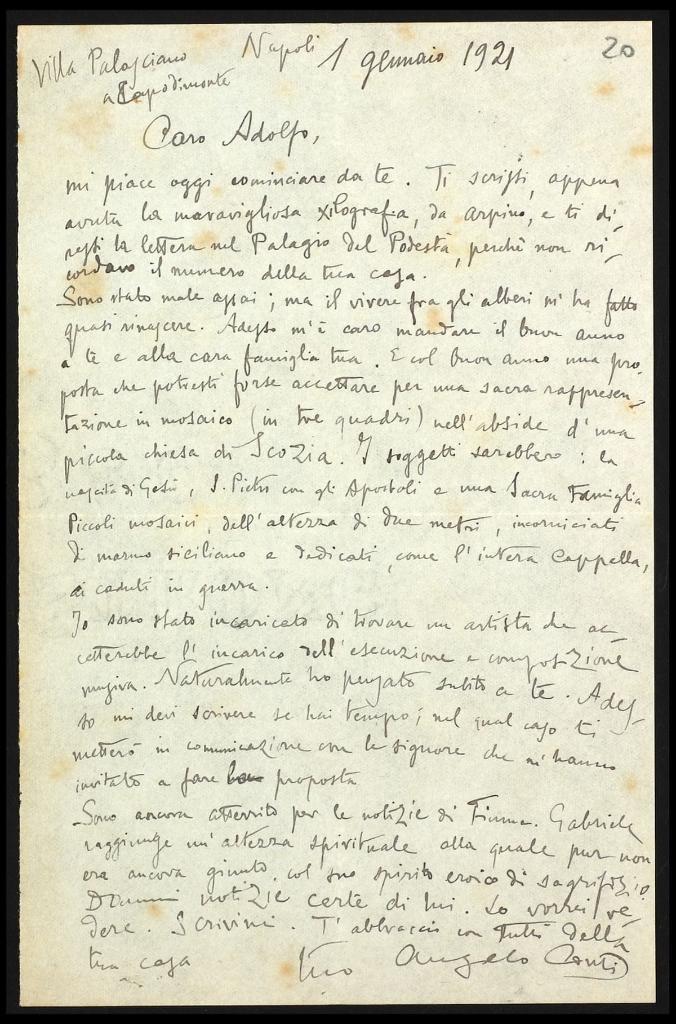 Villa Palasciano
a Capodimonte
Napoli 1 gennaio 1921
20
Caro Adolfo,
mi piace oggi cominciare da te. Ti scrissi, appena
avuta la maravigliosa xilografia, da Arpino, e ti di-
ressi la lettera nel Palagio del Podestà, perchè non ri-
cordavo il numero della tua casa.
Sono stato male assai; ma il vivere fra gli alberi m'ha fatto
quasi rinascere. Adesso m'è caro mandare il buon anno
a te e alla cara famiglia tua. E col buon anno una pro-
posta che potresti forse accettare per una sacra rappresen-
tazione in mosaico (in tre quadri) nell'abside d'una
piccola chiesa di Scozia. I soggetti sarebbero: la
nascita di Gesù, S. Pietro con gli Apostoli e una Sacra Famiglia
Piccoli mosaici, dell'altezza di due metri, incorniciati
di marmo siciliano e dedicati, come l'intera Cappella,
ai caduti in guerra.
Io sono stato incaricato di trovare un artista che ac-
cetterebbe l'incarico dell'esecuzione e composizione
musiva. Naturalmente ho pensato subito a te. Ades-
so mi devi scrivere se hai tempo; nel qual caso ti
metterò in comunicazione con le signore che m'hanno
invitato a fare proposta
Sono ancora atterrito per le notizie di Fiume. Gabriele
raggiunge un'altezza spirituale alla quale pur non
era ancora giunto, col suo spirito eroico di sagrifizio.
Dammi notizie certe di lui. Lo vorrei ve-
dere. Scrivimi. T'abbraccio con tutti della
tua casa
tuo Angelo Conti